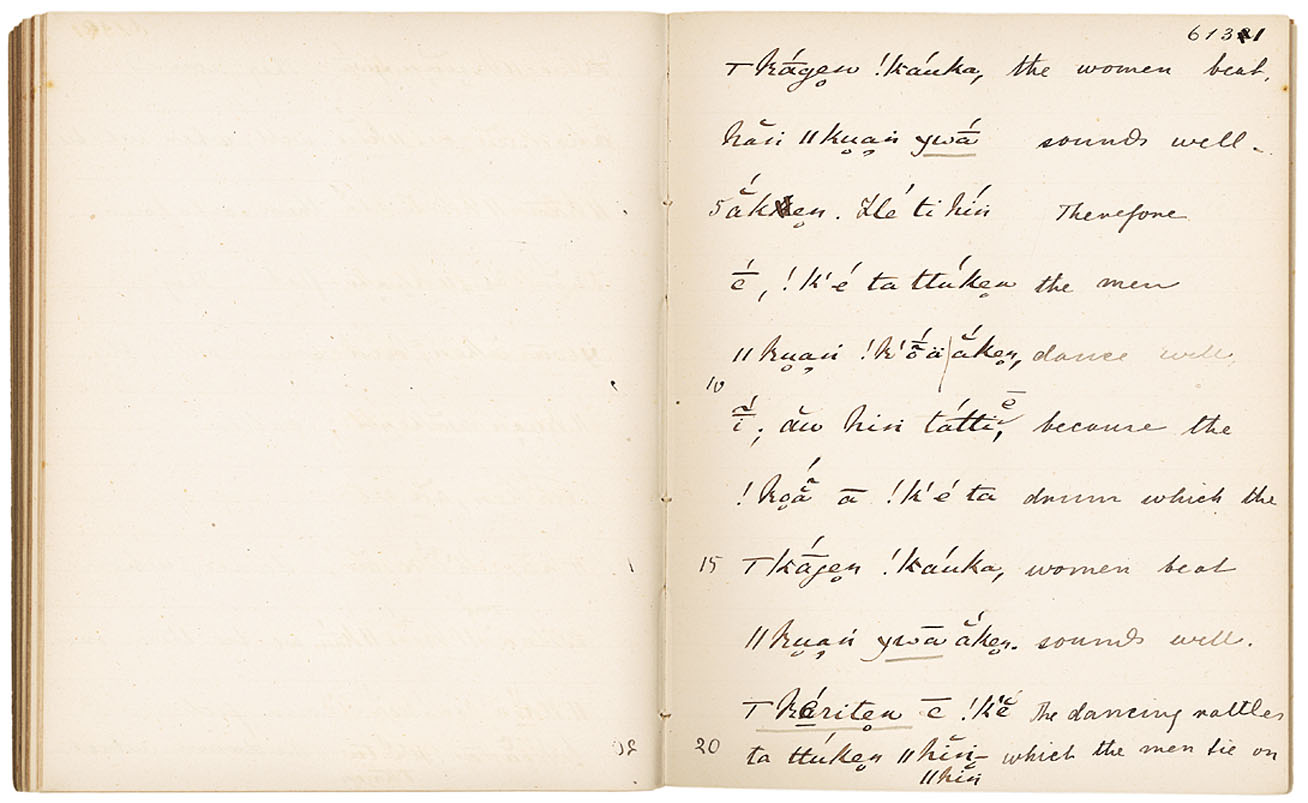 613
T kā́gen !káuka, the women beat,
hăn ǁkuań ywā́ sounds well-
5 ắken. Hé ti hiń Therefore
é̄, !k'é ta ttúken the men
ǁkuań !k'ṓä ắken, dance well,
10
ī́; ău hiń tátti ē, because the
!koā̃́ ā !k'é ta drum which the
15 T kā́gen !káuka, women beat
ǁkuań ywā ắken. sounds well.
T kériten ē !k'é The dancing rattles
20 ta ttúken ǁhiń- which the men tie on
ǁhiń